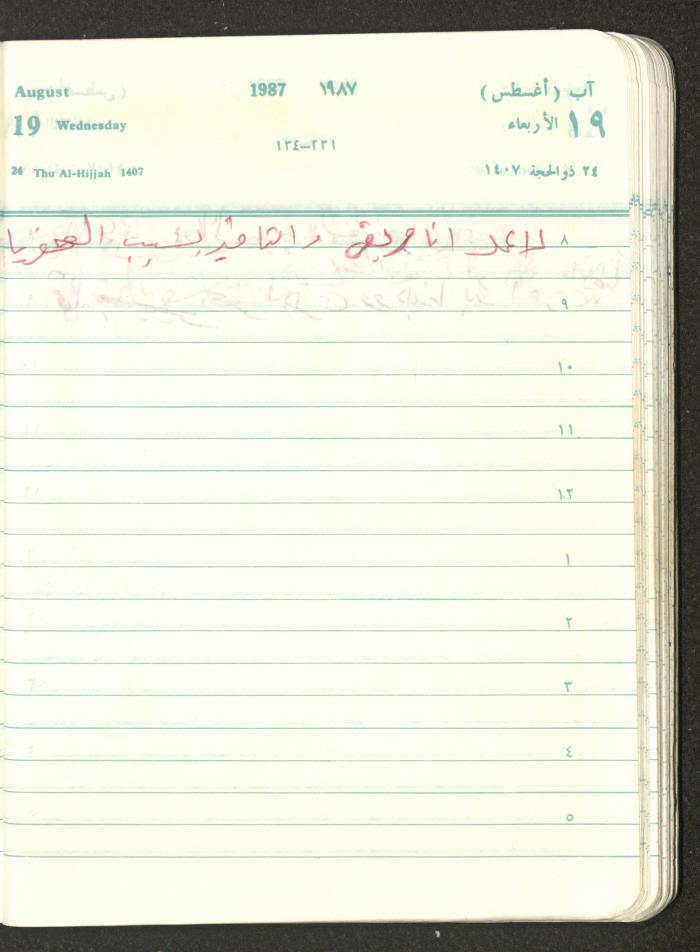 August 1987 ١٩٨٧ آب (أغسطس)
19 Wednesday ١٩ الأربعاء
٢٣١–١٣٤
24 Thu Al-Hijjah 1407 ٢٤ ذو الحجة ١٤٠٧
٨ لا عمل انا مريض بسبب
٩
١٠
١١
١٢
١
٢
٣
٤
٥